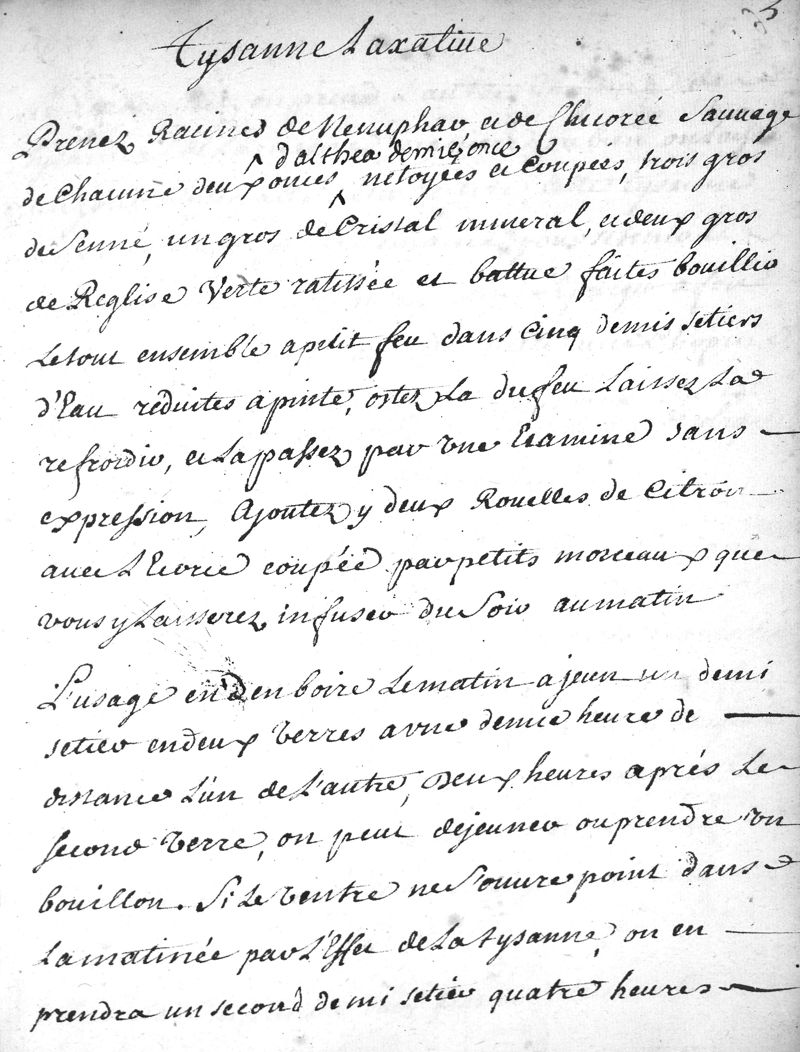 Tysanne Laxative
Prenez Racines de Nenuphar et de Chicoreé Sauvage
d'althea demie once
de Chacune deux onces netoyées et Coupées, trois gros
de Senné, un gros de Cristal mineral, et deux gros
de Reglise Verte ratissée et battue faites bouillir
Le tout ensemble a petit feu dans Cinq demis setiers
d'Eau réduites a pinte, ostez La du feu Laissez La
refroidir, et La passez par une Etamine sans
expression, Ajoutez y deux Rouelles de Citron
avec L'Ecorce coupée par petits morceaux que
vous y Laisserez infuser du Soir au matin
L'usage en est d'en boire Le matin a jeun un demi
setier en deux Verres a une demie heure de
distance L'un de L'autre, Deux heures aprés Le
second Verre, on peut déjeuner ou prendre un
bouillon. Si Le Ventre ne S'ouvre point dans
La matinée par L'Effet de La tysanne, on en
prendra un second demi setier quatre heures